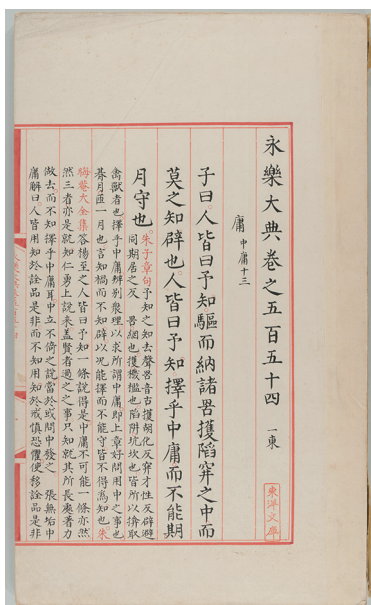 永樂大典卷之五百五十四 一東
庸 中庸十三
子曰人皆曰予知驅而納諸罟擭陷穽之中而
莫之知辟也人皆曰予知擇乎中庸而不能期
月守也朱子章句予知之知去聲罟音古擭胡化反穽才性反辟避
同期居之反 罟網也擭機檻也陷阱坑坎也皆所以掩取
禽獸者也擇乎中庸辨別衆理以求所謂中庸即上章好問用中之事也
朞月匝一月也言知禍而不知辟以況能擇而不能守皆不得爲知也朱
晦菴大全集答楊至之人皆曰予知一條說得是中庸不可能一條亦然
然三者亦是就知仁勇上說來蓋賢者過之之事只知就其所長處着力
做去而不知擇乎中庸耳中立不倚之說當於或問中發之 張無垢中
庸解曰人皆用知於詮品是非而不知用知於戒慎恐懼使移詮品是非
東洋文庫